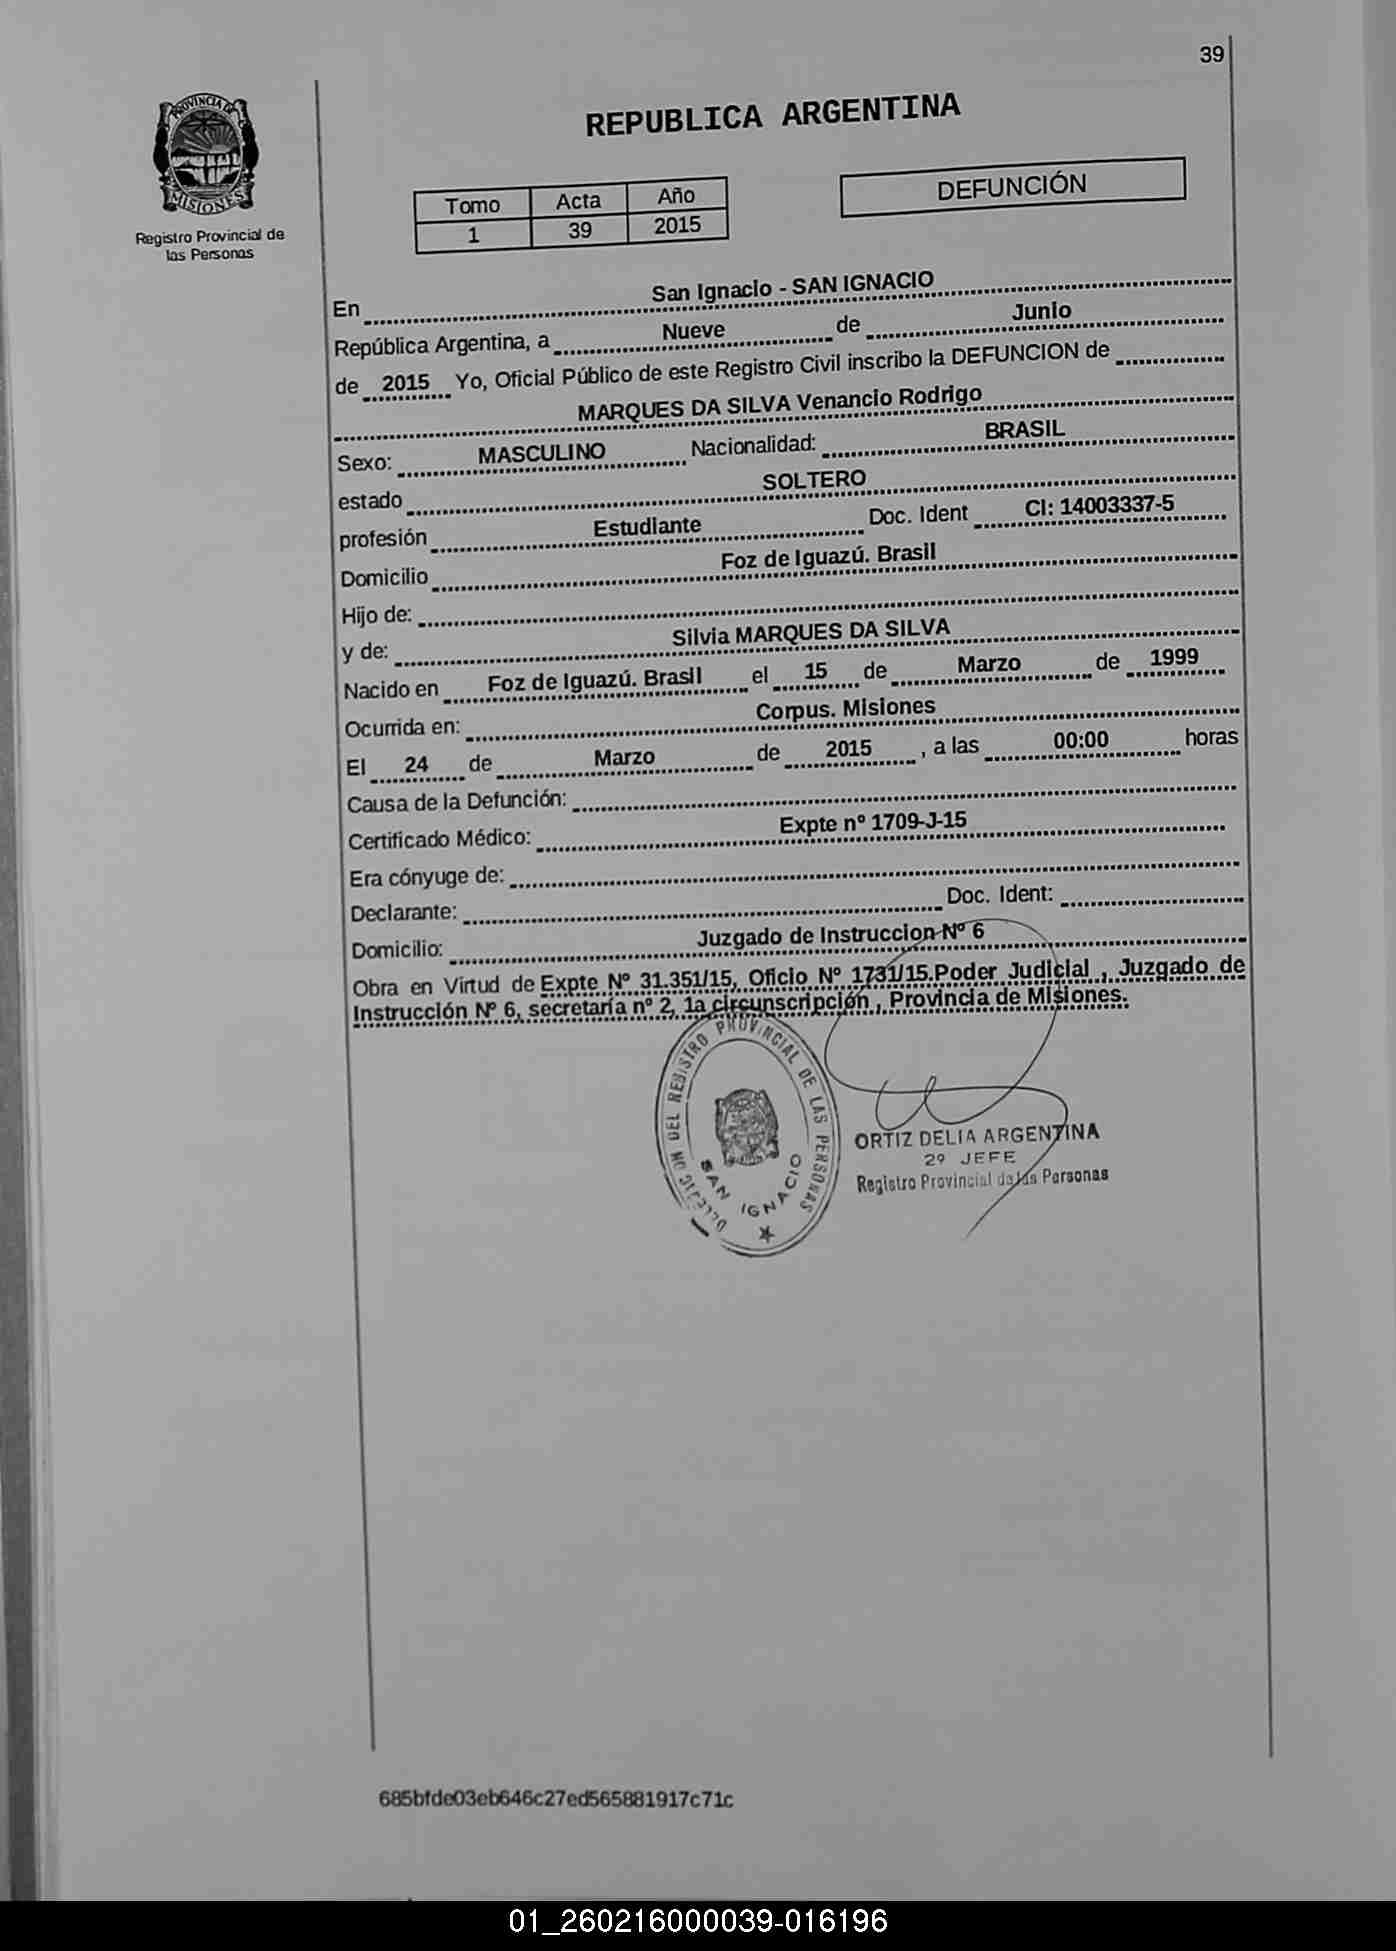 39
PROVINCIA DE
MISIONES
Registro Provincial de
las Personas
REPUBLICA ARGENTINA
Tomo Acta Año
1 39 2015
DEFUNCIÓN
En San Ignacio - SAN IGNACIO
República Argentina, a Nueve de Junio
de 2015 Yo, Oficial Público de este Registro Civil inscribo la DEFUNCION de
MARQUES DA SILVA Venancio Rodrigo
Sexo: MASCULINO Nacionalidad: BRASIL
estado SOLTERO
profesión Estudiante Doc. Ident CI: 14003337-5
Domicilio Foz de Iguazú. Brasil
Hijo de:
y de: Silvia MARQUES DA SILVA
Nacido en Foz de Iguazú. Brasil el 15 de Marzo de 1999
Ocurrida en: Corpus. Misiones
El 24 de Marzo de 2015 , a las 00:00 horas
Causa de la Defunción:
Certificado Médico: Expte nº 1709-J-15
Era cónyuge de:
Declarante: Doc. Ident:
Domicilio: Juzgado de Instruccion Nº 6
Obra en Virtud de Expte Nº 31.351/15, Oficio Nº 1731/15.Poder Judicial , Juzgado de
Instrucción Nº 6, secretaría nº 2, 1a circunscripción , Provincia de Misiones.
DEL REGISTRO PROVINCIAL DE LAS PERSONAS
SAN IGNACIO
ORTIZ DELIA ARGENTINA
2º JEFE
Registro Provincial de las Personas
685bfde03eb646c27ed565881917c71c
01_260216000039-016196